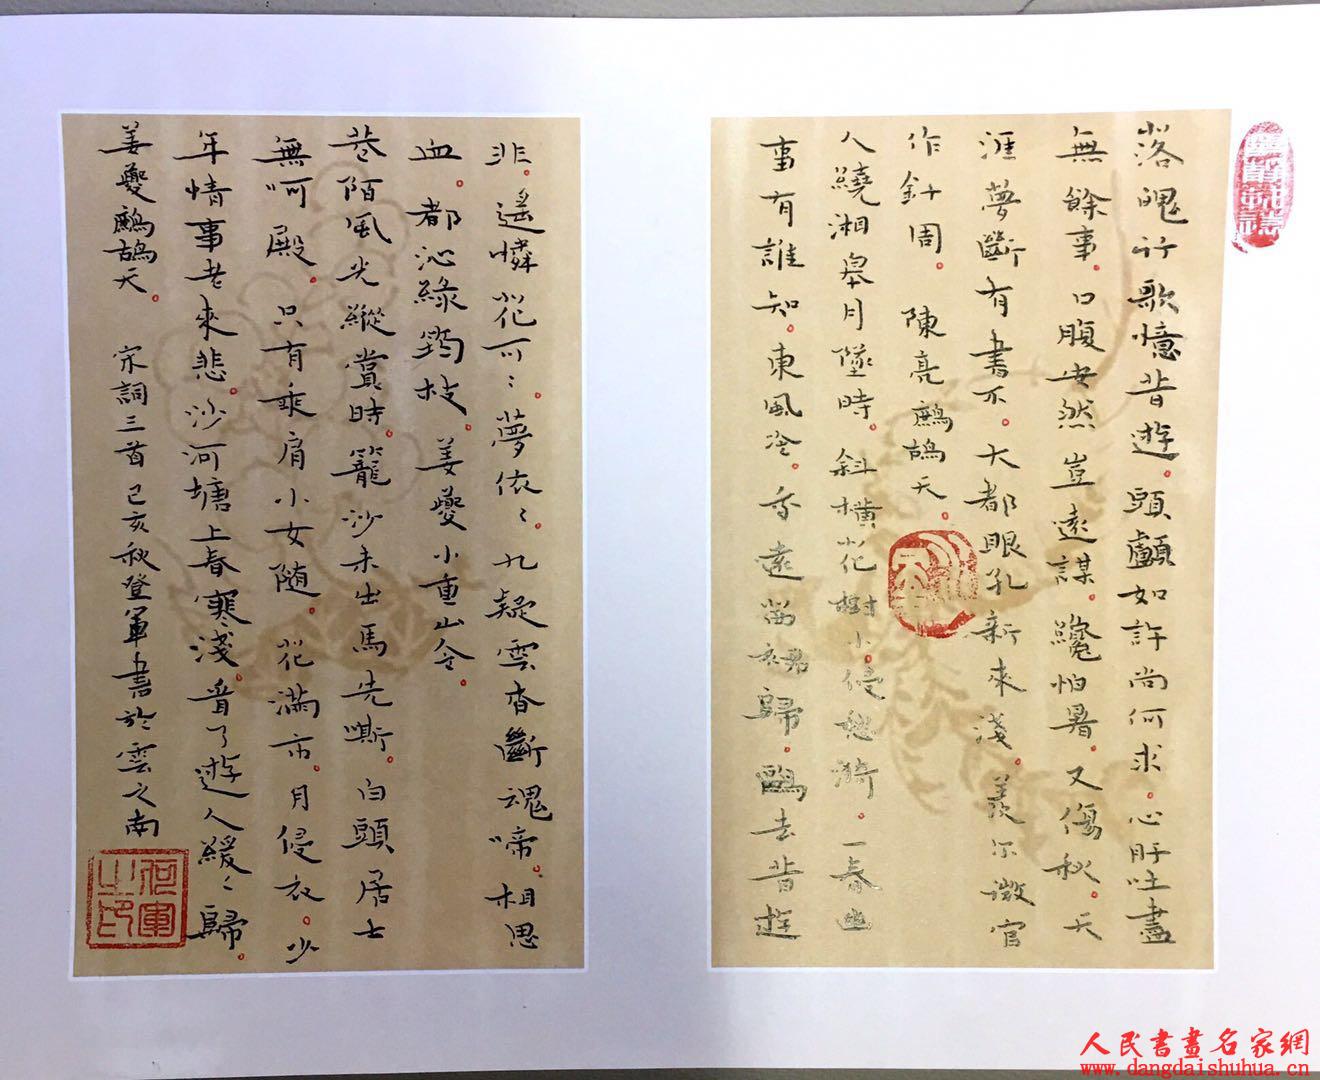 落魄行歌憶昔遊。頭顱如許尚何求。心肝吐盡
無餘事。口腹安然豈遠謀。纔怕暑。又傷秋。天
涯夢斷有書不。大都眼孔新來淺。羨尔微官
作計周。陳亮鷓鴣天。
人繞湘皋月墜時。斜橫花樹小。侵愁漪。一春幽
事有誰知。東風冷。香遠茜裙歸。鷗去昔遊
非。遙憐花可〻。夢依〻。九疑雲杳斷魂啼。相思
血。都沁綠筠枝。姜夔小重山令。
巷陌風光縱賞時。籠沙未出馬先嘶。白頭居士
無呵殿。只有乘肩小女隨。花滿市。月侵衣。少
年情事老來悲。沙河塘上春寒淺。看了遊人緩〻歸。
姜夔鷓鴣天。宋詞三首己亥秋登軍書於雲之南
何軍之印
人民書畫名家網
www.dangdaishuhua.cn